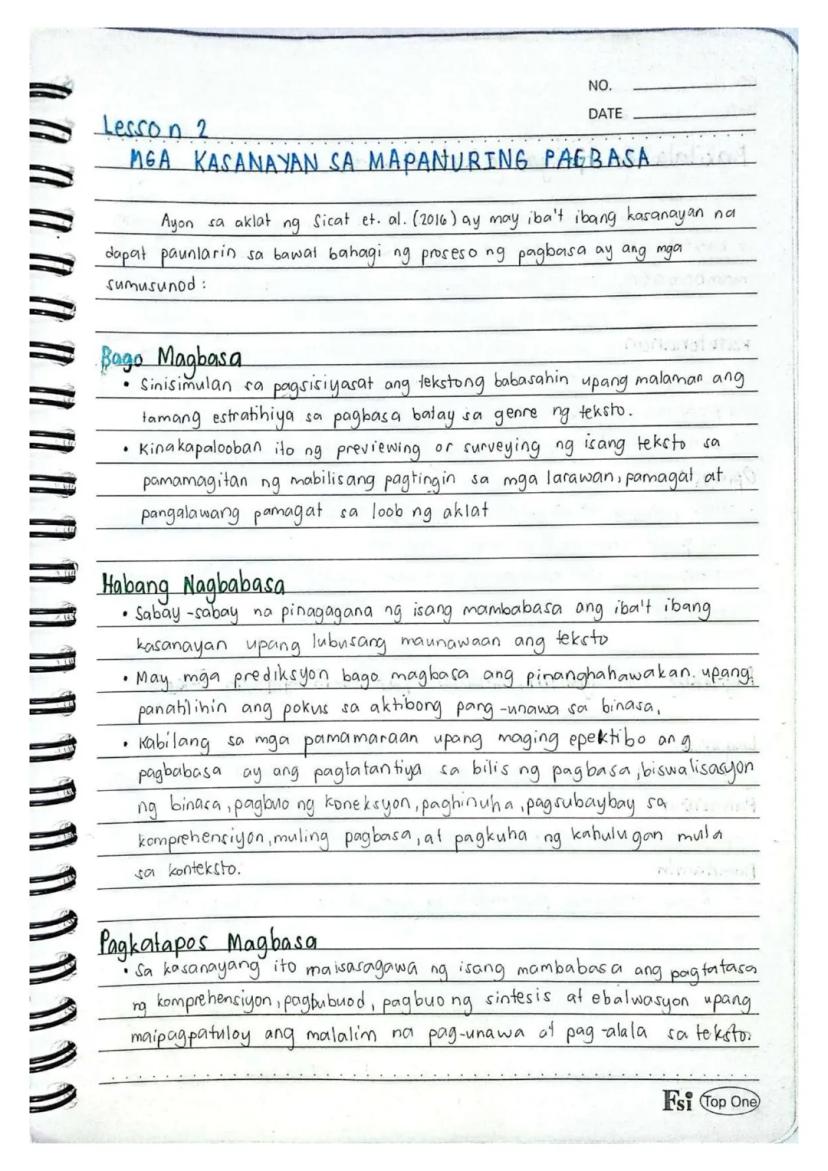 NO.
DATE
Lesson 2
MGA KASANAYAN SA MAPANURING PAGBASA
Ayon sa aklat ng Sicat et. al. (2016) ay may iba't ibang kasanayan na
dapat paunlarin sa bawat bahagi ng proseso ng pagbasa ay ang mga
sumusunod :
Bago Magbasa
• Sinisimulan sa pagsisiyasat ang tekstong babasahin upang malaman ang
tamang estratihiya sa pagbasa batay sa genre ng teksto.
• Kinakapalooban ito ng previewing or surveying ng isang teksto sa
pamamagitan ng mabilisang pagtingin sa mga larawan, pamagat at
pangalawang pamagat sa loob ng aklat
Habang Nagbabasa
• Sabay-sabay na pinagagana ng isang mambabasa ang iba't ibang
kasanayan upang lubusang maunawaan ang teksto
• May mga prediksyon bago magbasa ang pinanghahawakan. upang
panatilihin ang pokus sa aktibong pang-unawa sa binasa,
• Kabilang sa mga pamamaraan upang maging epektibo ang
pagbabasa ay ang pagtatantiya sa bilis ng pagbasa, biswalisasyon
ng binasa, pagbuo ng koneksyon, paghinuha, pagsubaybay sa
komprehensiyon, muling pagbasa, at pagkuha ng kahulugan mula
sa konteksto.
Pagkatapos Magbasa
• Sa kasanayang ito maisasagawa ng isang mambabasa ang pagtatasa
ng komprehensiyon, pagbubuod, pagbuo ng sintesis at ebalwasyon upang
maipagpatuloy ang malalim na pag-unawa at pag-alala sa teksto.
Fsi Top One